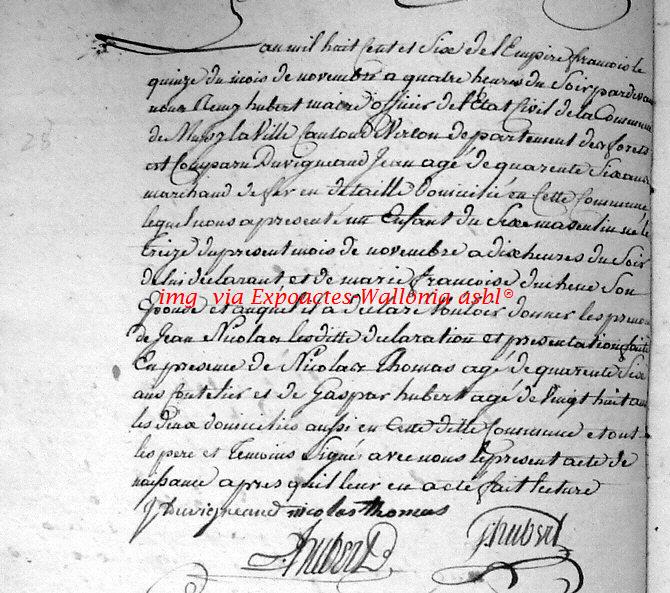 an mil huit Cent et Six de l'Empire francois le
quinze du mois de novembre a quatre heures du Soir pardevant
nous Remy hubert maire d'officier de l'Etat Civil de la Commune
de Mussy la Ville Canton Virton departement des forets
est Comparu Duvigneaud Jean agé de quarente Six ans
marchand de fer en detaille domicilié en Cette Commune
lequel nous a presenté un Enfant du Sexe masculin né le
treize du present mois de novembre a dix heures du Soir
de lui déclarant et de marie francoise Son
img via Expoactes Wallonia asbl©
Epouse et auquel il a declaré vouloir donner les prenoms
de Jean Nicolas lesditte declaration et presentation faite
En presence de Nicolas Thomas agé de quarente Six
ans et de Gaspar hubert agé de vingt huit ans
les deux domicilies aussi en Cette ditte Commune et ont
les pere et Temoins Signés avec nous le present acte de
naissance apres qu'il leur en a eté fait lecture
J Duvigneaud nicolas thomas
hubert G hubert
28